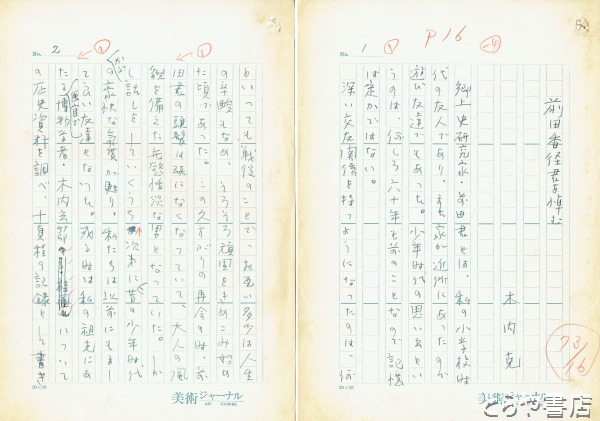 No. 1
P16
前田香径君を悼む
木内克
郷土史研究家・前田君とは、私の小学校時
代の友人であり、また家が近所にあったので
遊び友達でもあった。少年時代の思い出とい
うのは、何しろ六十年も前のことなので記憶
は定かではない。
深い交友関係を持つようになったのは、何
73/16
20×10
美術ジャーナル
ART JOURNAL
No. 2
といっても戦後のことで、お互い多少は人生
の辛酸もなめ、そろそろ頑固をきめこみ始め
た頃であった。この久方ぶりの再会の時、前
田君の頭髪は既になくなっていて、大人の風
貌を備えた無慾恬淡な男となっていた。しか
し話しをしていくうち次第に昔の少年時代
の豪快な気質が甦り、私たちは以前にもまし
て良い友達となった。或る時は私の祖先にあ
たる医官で博物学者・木内玄節について
の歴史資料を調べ、十員桂の記録として書き
20×10
美術ジャーナル
ART JOURNAL
とらや書店